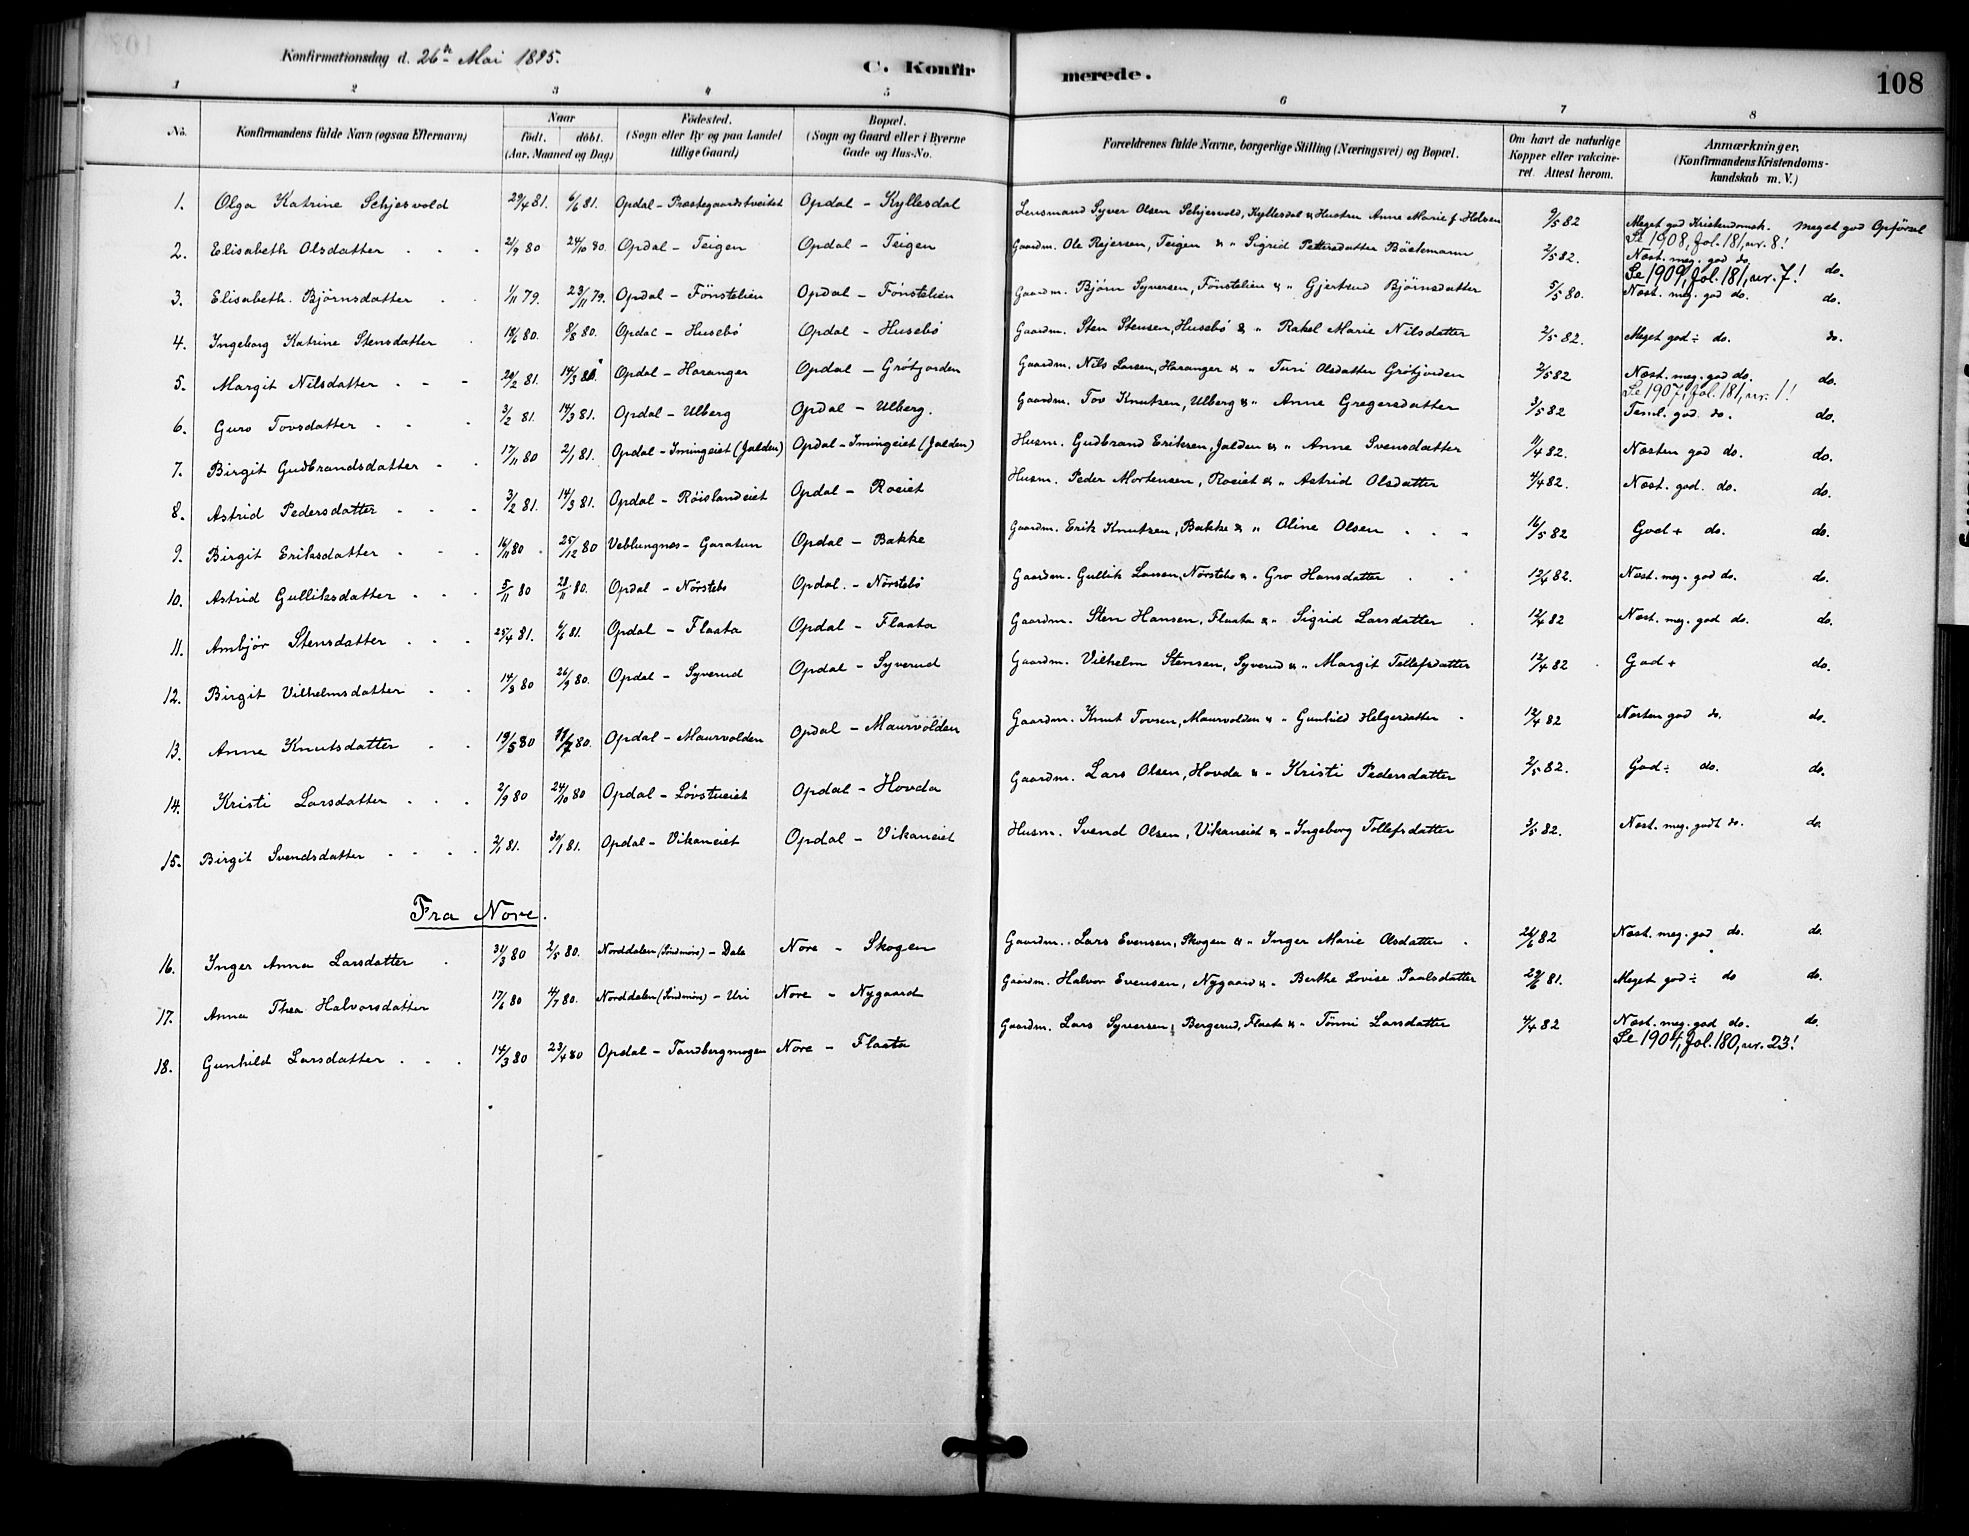 Konfirmationsdag d. 26de Mai 1895.
C. Konfirmerede.
108
1 2 3 4 5 6 7 8
No. Konfirmandens fulde Navn (ogsaa Efternavn) Naar født. døbt. (Aar, Maaned og Dag) Fødested. (Sogn eller By og paa Landet tillige Gaard) Bopæl. (Sogn og Gaard eller i Byerne Gade og Hus-No. Forældrenes fulde Navne, borgerlige Stilling (Næringsvei) og Bopæl. Om havt de naturlige Kopper eller vakcineret. Attest herom. Anmærkninger. (Konfirmandens Kristendomskundskab m. V.)
1. Olga Katrine Schjesvold 29/4 81. 6/6 81. Opdal - Præstegaardstveitet Opdal - Kyllesdal Lensmand Syver Olsen Schjesvold, Kyllesdal & Hustru Anne Marie f Holsen 9/5 82 Meget god Kristendomsk. meget god Opførsel
2. Elisabeth Olsdatter 2/9 80 24/10 80. Opdal - Teigen Opdal - Teigen Gaardm. Ole Reiersen, Teigen & " Sigrid Pettersdatter 2/5 82. Se 1908, fol. 181, nr. 8! Næst. meg. god do. do.
3. Elisabeth Bjørnsdatter 1/11 79. 23/11 79. Opdal - Fønstelien Opdal - Fønstelien Gaardm. Bjørn Syversen, Fønstelien & " Gjertrud Bjørnsdatter 5/5 80. Se 1909, fol. 181, nr. 7! Næst. meg. god do. do.
4. Ingeborg Katrine Stensdatter 18/6 80. 8/8 80. Opdal - Husebö Opdal - Husebö Gaardm. Sten Stensen, Husebö & " Rakel Marie Nilsdatter 2/5 82. Meget god ÷ do. do.
5. Margit Nilsdatter 20/2 81. 14/3 81. Opdal - Haranger Opdal - Grötjorden Gaardm. Nils Larsen, Haranger & " Turi Olsdatter Grötjorden 2/5 82 Næst. meg. god do. do.
6. Guro Tovsdatter 3/2 81. 14/3 81. Opdal - Ulberg Opdal - Ulberg. Gaardm. Tov Knutsen, Ulberg & " Anne Gregersdatter 3/5 82 Se 1907, fol. 181, nr. 1! Teml. god do. do.
7. Birgit Gudbrandsdatter 17/11 80 2/1 81. Opdal - Imingeiet (Jalden) Opdal - Imingeiet (Jalden) Husm. Gudbrand Eriksen, Jalden & " Anne Svensdatter 11/4 82. Næsten god do. do.
8. Astrid Pedersdatter 3/2 81. 14/3 81. Opdal - Röislandeiet Opdal - Roeiet Husm. Peder Mortensen, Roeiet & " Astrid Olsdatter 4/4 82. Næst. god. do. do.
9. Birgit Eriksdatter 16/11 80. 25/12 80 Veblungnes - Garatun Opdal - Bakke Gaardm. Erik Knutsen, Bakke & " Oline Olsen 16/5 82 God + do. do.
10. Astrid Gulliksdatter 5/11 80 28/11 80. Opdal - Nörstebö Opdal. - Nörstebö Gaardm. Gullik Larsen, Nörstebö & " Gro Hansdatter 12/4 82. Næst. meg. god do. do.
11. Ambjør Stensdatter 25/4 81. 6/6 81. Opdal - Flaata Opdal - Flaata Gaardm. Sten Hansen, Flaata & " Sigrid Larsdatter 12/4 82 Næst. meg. god do. do.
12. Birgit Vilhelmsdatter 14/8 80 26/9 80. Opdal - Syverud Opdal - Syverud Gaardm. Vilhelm Stensen, Syverud & " Margit Tollefsdatter 12/4 82 God + do.
13. Anne Knutsdatter 19/5 80 11/7 80. Opdal - Maurvolden Opdal - Maurvolden Gaardm. Knut Tovsen, Maurvolden & " Gunhild Helgesdatter 12/4 82 Næsten god do. do.
14. Kristi Larsdatter 2/9 80 24/10 80 Opdal - Løvstueiet Opdal - Hovda Gaardm. Lars Olsen, Hovda & " Kristi Pedersdatter 2/5 82. God ÷ do. do.
15. Birgit Svendsdatter 2/1 81. 30/1 81. Opdal - Vikaneiet Opdal - Vikaneiet Husm. Svend Olsen, Vikaneiet & " Ingeborg Tollefsdatter 3/5 82. Næst. meg. godt do. do.
Fra Nore.
16. Inger Anna Larsdatter 31/3 80 2/5 80. Norddalen (Söndmöre) - Dale Nore - Skogen Gaardm. Lars Evensen, Skogen & " Inger Marie Olsdatter 24/6 82 Næst. meg. god do. do.
17. Anna Thea Halvorsdatter 17/6 80 4/7 80. Norddalen (Söndmöre) - Uri Nore - Nygaard Gaardm. Halvor Evensen, Nygaard & " Berthe Lovise Paalsdatter 29/6 81. Meget god ÷ do do.
18. Gunhild Larsdatter 14/3 80 23/4 80 Opdal - Tandbergmogen Nore - Flaata Gaardm. Lars Syversen, Bergerud, Flaata & " Tönni Larsdatter 4/4 82 Næst. meg. god do. do.
Se 1904, fol. 180, nr. 23!